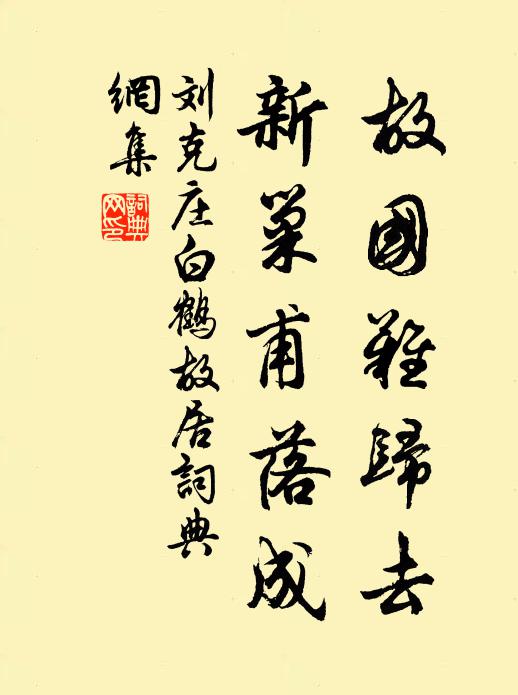 故國難歸去
新巢甫落成
刘克庄白鶴故居詞典
網集
詞典網印